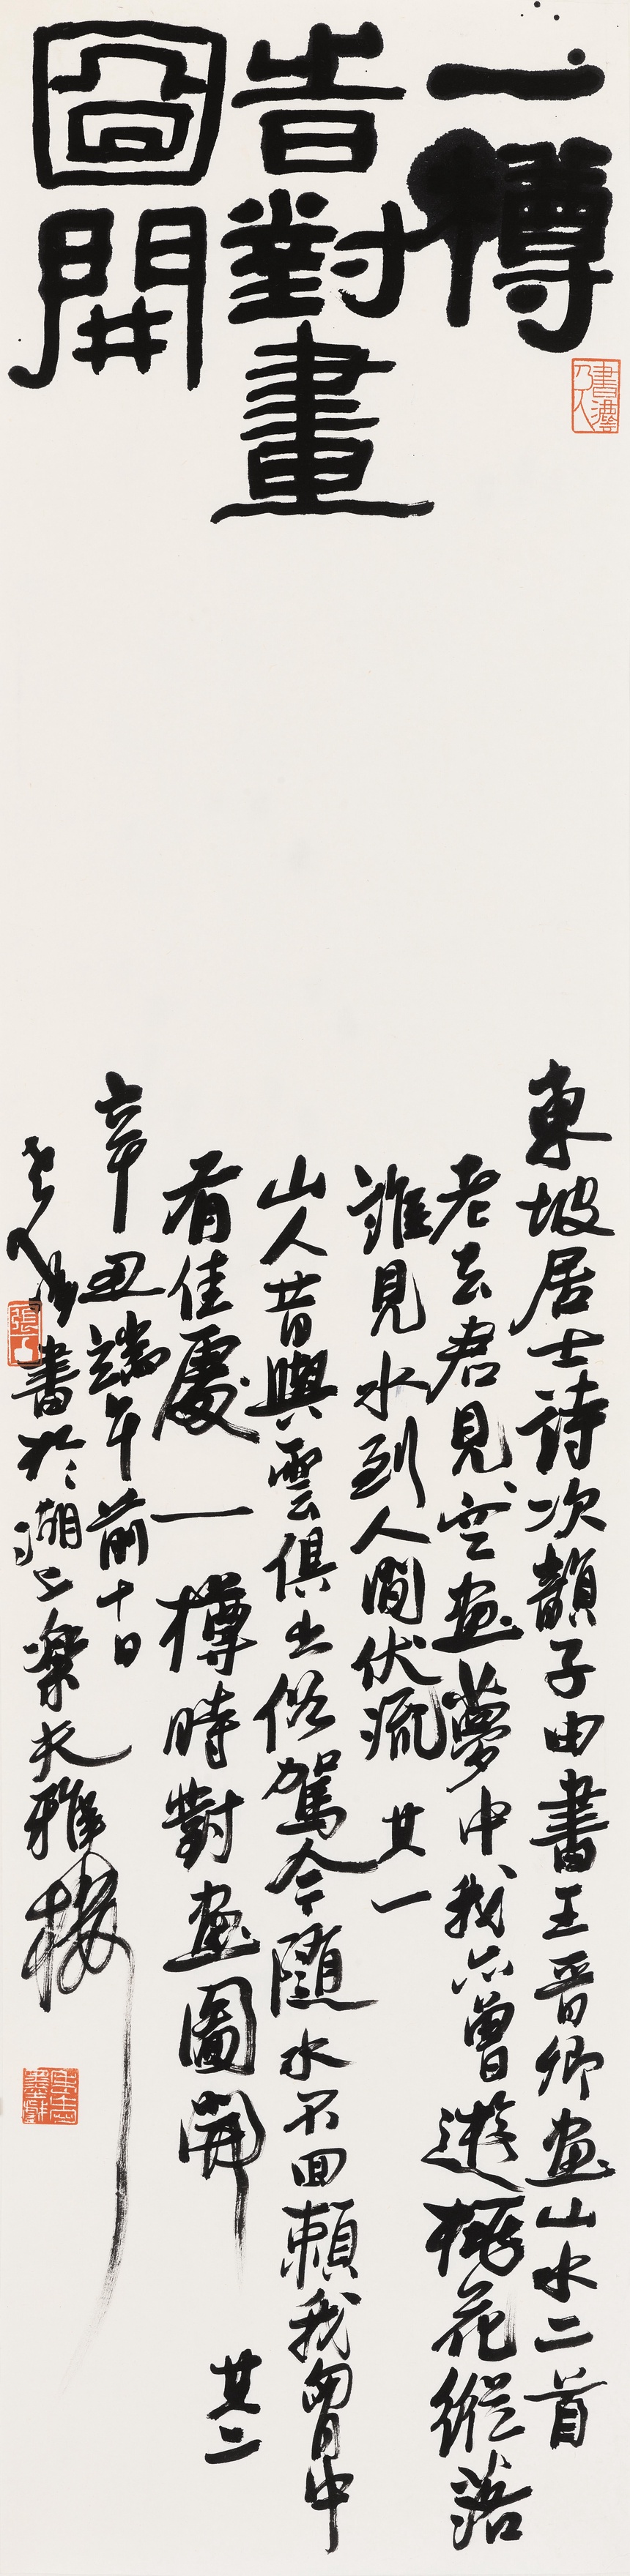 一樽
旹對畫
圖開
東坡居士詩次韻子由書王晉卿畫山水二首
老去君見空畫夢中我亦曾遊桃花縱落
誰見水到人間伏流 其一
山人昔與雲俱出俗駕今隨水不回賴我胷中
有佳處一樽時對畫圖開 其二
辛丑端午前十日
書於湖上樂大雅樓